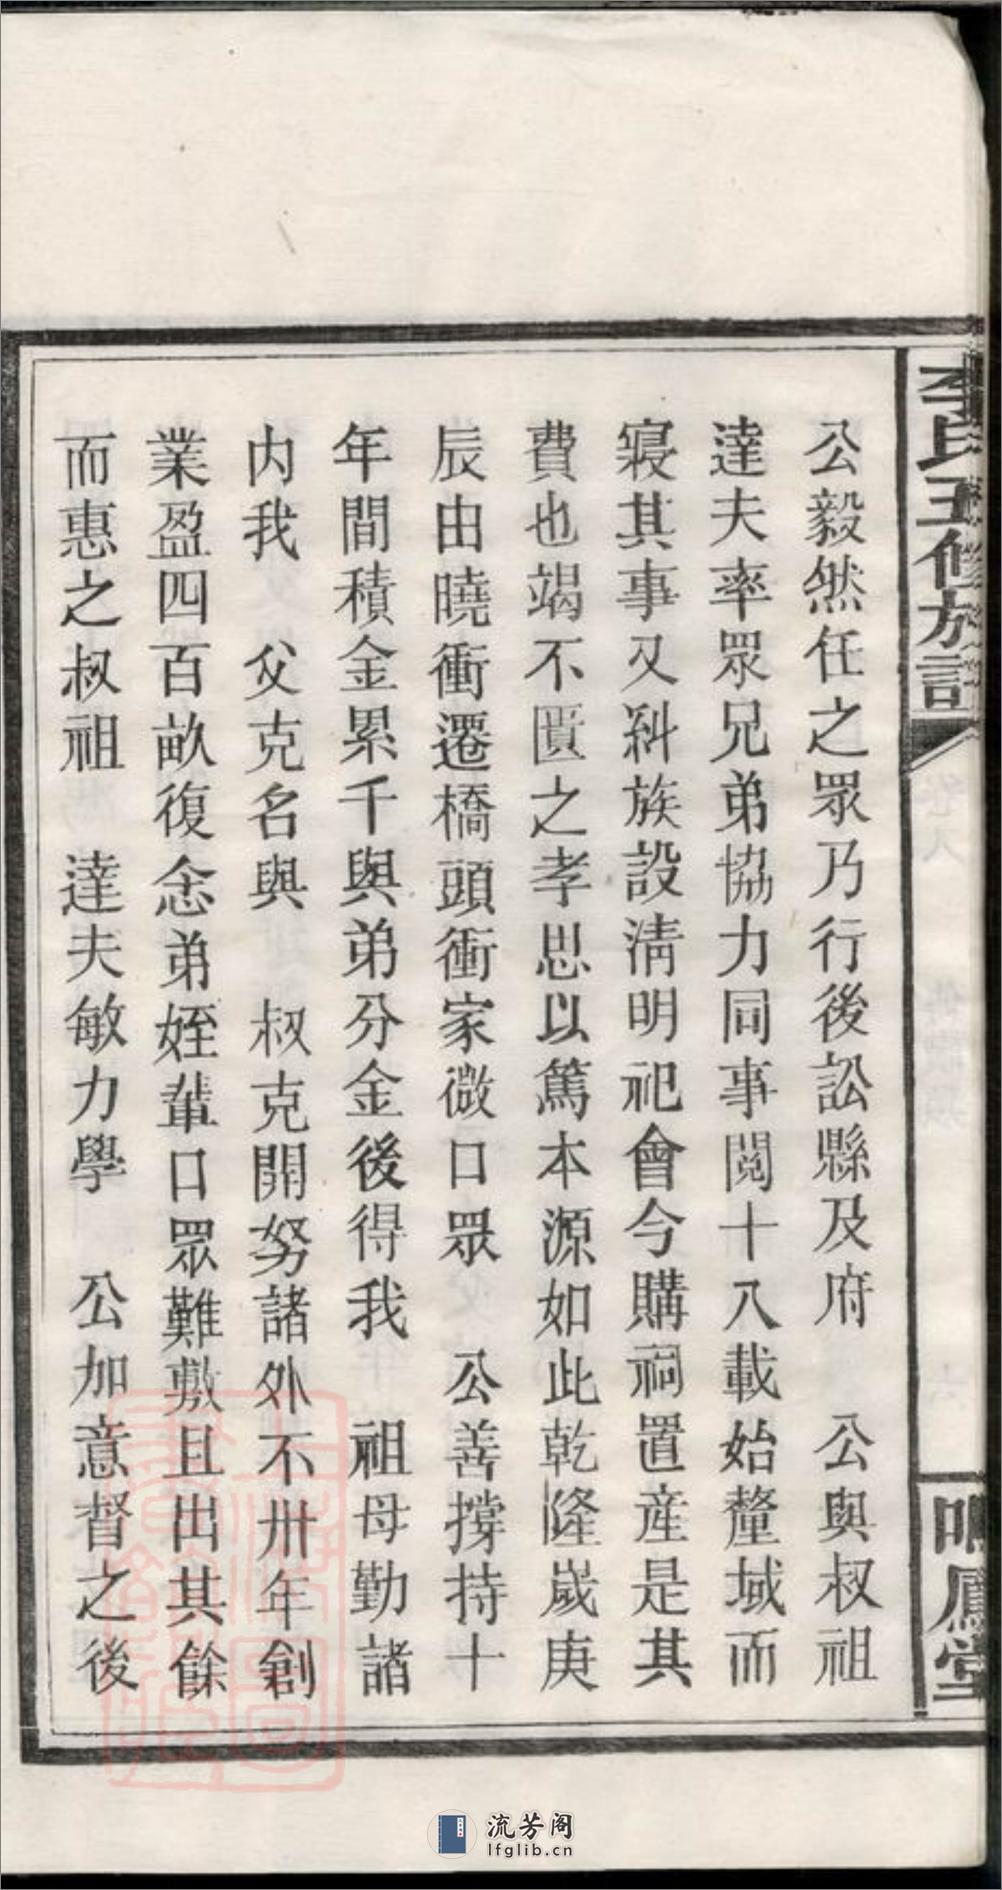 李氏五修族譜
鳴鳳堂
公毅然任之眾乃行後訟縣及府　公與叔祖
達夫率眾兄弟協力同事閱十八載始釐域而
寢其事又糾族設清明祀會今購祠置產是其
費也竭不匱之孝思以篤本源如此乾隆歲庚
辰由曉衝遷橋頭衝家微口眾　公善撐持十
年間積金累千與弟分金後得我　祖母勤諸
內我　父克名與　叔克開努諸外不卅年創
業盈四百畝復念弟姪輩口眾難敷且出其餘
而惠之叔祖　達夫敏力學　公加意督之後
流芳阁
lfglib.cn